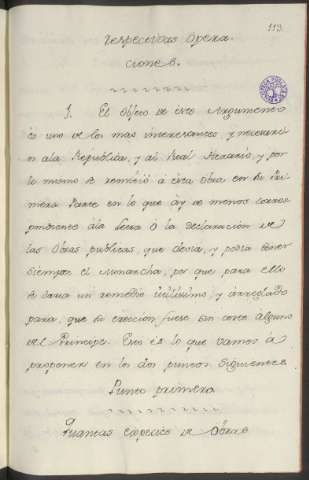 113.
respectivas Opera-
ciones.
1. El objeto de este Argumento
es uno de los mas interesantes, y necesario
s ala Republica, y al Real Herario, y por
lo mismo se remitió á esta Obra en su Pri-
mera Parte en lo que ay de menos corres
pondiente ála letra ô la declaración de
las Obras publicas, que devia, y podia tener
siempre el Monarcha, por que para ello
se daria un remedio utilisimo, y arreglado
para, que su ereccion fuese sin coste alguno
del Principe. Esto es lo que vamos á
proponer en los dos puntos siguientes
Punto primero
Quantas especies de Obras